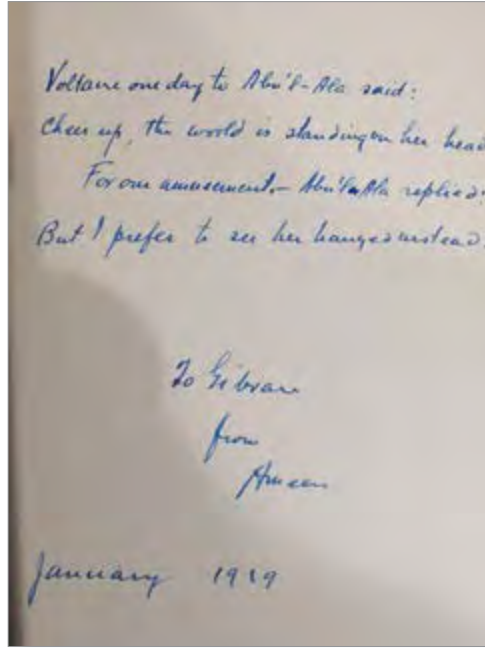 Voltaire one day to Abu'l-Ala said:
Cheer up, the world is standing on her head
For our amusement.— Abu'l-Ala replied:
But I prefer to see her hanged instead.
To Gibran
from
Ameen
January 1919